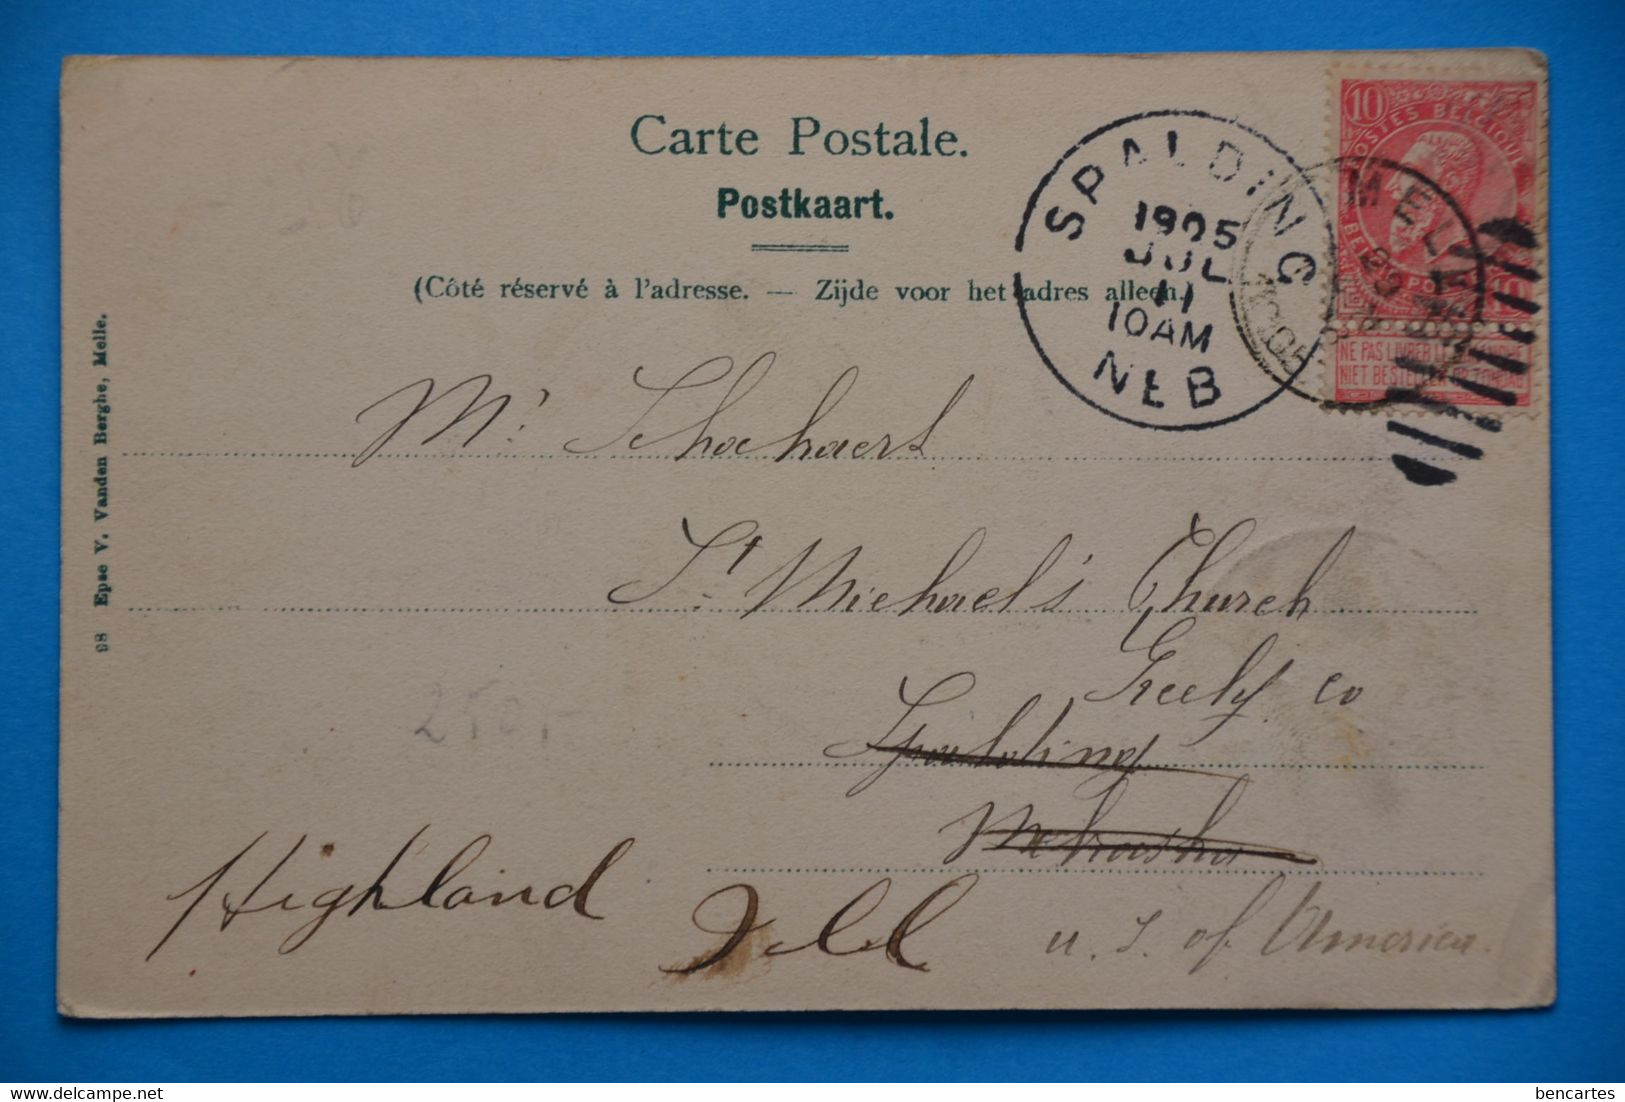 Carte Postale.
Postkaart.
(Côté réservé à l'adresse. — Zijde voor het adres alleen.)
SPALDING
1905
JUL
11
10AM
NEB
10
POSTES BELGIQUE
NE PAS LIVRER LE DIMANCHE
NIET BESTELLEN OP ZONDAG
98 Epse V. Vanden Berghe, Melle.
Mr. Schochaert
St Michael's Church
Greely co
Spalding
Nebraska
Highland Ill
U. S. of America.
bencartes